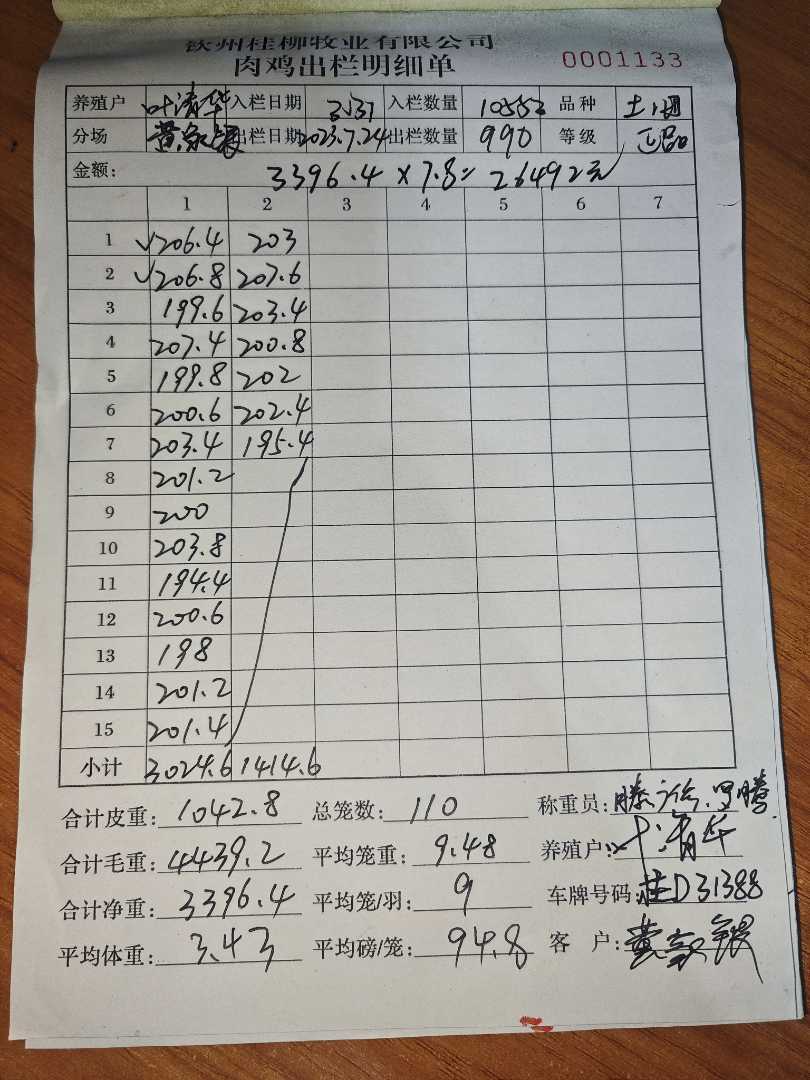 钦州桂柳牧业有限公司
肉鸡出栏明细单 0001133
养殖户 叶清华 入栏日期 入栏数量 10553 品种
分场 出栏日期 2023.7.24 出栏数量 990 等级 正品
金额: 3396.4 × 7.8 = 26492元
1 2 3 4 5 6 7
1 √206.4 203
2 √206.8 207.6
3 199.6 203.4
4 207.4 200.8
5 199.8 202
6 200.6 202.4
7 203.4 195.4
8 201.2
9 200
10 203.8
11 194.4
12 200.6
13 198
14 201.2
15 201.4
小计 3024.6 1414.6
合计皮重: 1042.8 总笼数: 110 称重员:
合计毛重: 4439.2 平均笼重: 9.48 养殖户: 叶清华
合计净重: 3396.4 平均笼/羽: 9 车牌号码: 桂D31388
平均体重: 3.43 平均磅/笼: 94.8 客户: